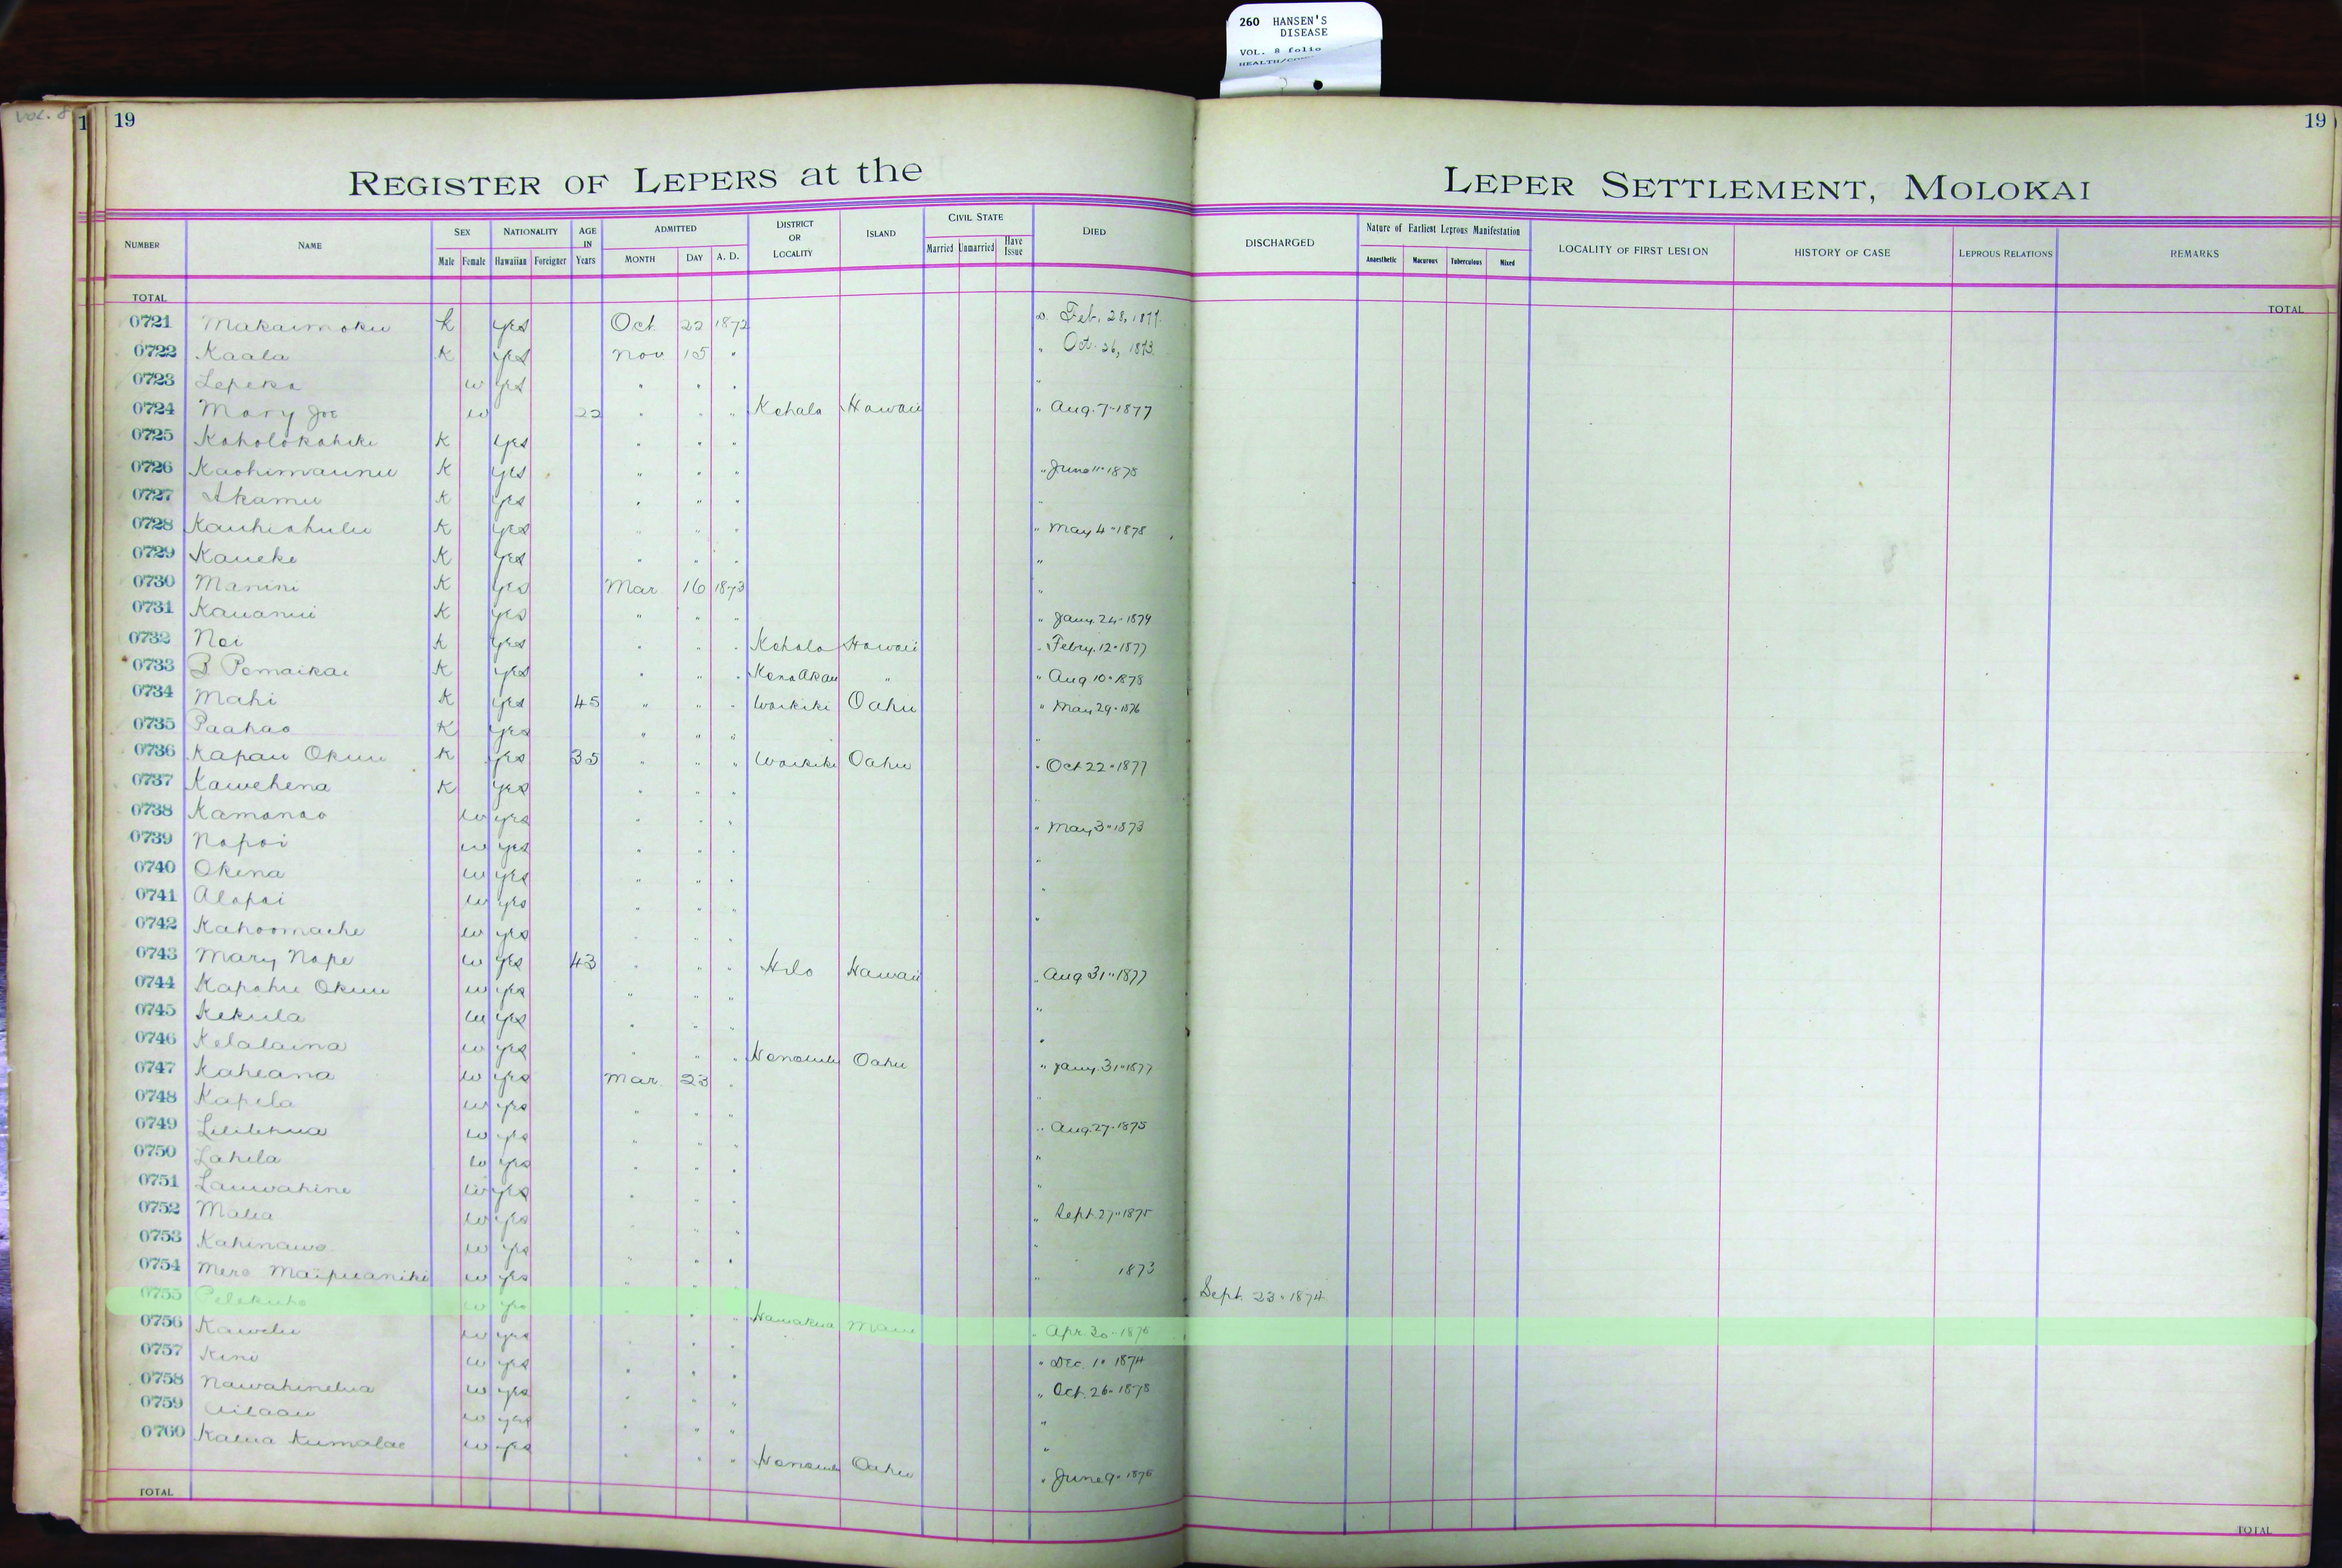 260 HANSEN'S
DISEASE
VOL. 8 folio
Vol. 8
1 19 19
REGISTER OF LEPERS at the LEPER SETTLEMENT, MOLOKAI
NUMBER NAME SEX Male Female NATIONALITY Hawaiian Foreigner AGE IN Years ADMITTED MONTH DAY A. D. DISTRICT OR LOCALITY ISLAND CIVIL STATE Married Unmarried Have Issue DIED DISCHARGED Nature of Earliest Leprous Manifestation Anaesthetic Macurous Tuberculous Mixed LOCALITY OF FIRST LESION HISTORY OF CASE LEPROUS RELATIONS REMARKS
TOTAL TOTAL
0721 Makaimoku k yes Oct 22 1872 Feb. 28, 1877
0722 Kaala K yes Nov 15 " " Oct. 26, 1873
0723 Lepeka w yes " " " "
0724 Mary Joe w 22 " " " Kohala Hawaii " Aug. 7" 1877
0725 Koholokahiki K yes " " "
0726 Kaohimaunu K yes " " " " June 11" 1878
0727 Akamu K yes " " " "
0728 Kauhiahulu K yes " " " " May 4" 1878
0729 Kaueke K yes " " " "
0730 Manini K yes Mar 16 1873 "
0731 Kauanui K yes " " " " Jany. 24" 1879
0732 Noi K yes " " " Kohala Hawaii " Febry. 12" 1877
0733 B Pomaikai K yes " " " Kona Akau " " Aug 10" 1878
0734 Mahi K yes 45 " " " Waikiki Oahu " May 29" 1876
0735 Paahao K yes " " " "
0736 Kapau Okuu K yes 35 " " " Waikiki Oahu " Oct 22" 1877
0737 Kawehena K yes " " " "
0738 Kamanao w yes " " " " May 3" 1873
0739 Napoi w yes " " " "
0740 Okina w yes " " " "
0741 Alapai w yes " " " "
0742 Kahoomache w yes " " "
0743 Mary Nape w yes 43 " " " Hilo Hawaii " Aug 31" 1877
0744 Kapahu Okuu w yes " " " "
0745 Kekula w yes " " " "
0746 Kelalaina w yes " " " Honolulu Oahu " Jany. 31" 1877
0747 Kaheana w yes Mar. 23 " "
0748 Kapela w yes " " "
0749 Lililehua w yes " " " " Aug. 27" 1875
0750 Lahela w yes " " " "
0751 Lauwahine w yes " " " "
0752 Malia w yes " " " " Sept. 27" 1875
0753 Kahinawe w yes " " " "
0754 Mere Maipuaniki w yes " " " " 1873
0755 Pelekuho w yes " " " Sept. 23" 1874
0756 Kawelu w yes " " " Hamakua Maui " Apr. 30" 1876
0757 Kini w yes " " " " Dec. 1" 1874
0758 Nawahinelua w yes " " " " Oct. 26" 1878
0759 Ailaau w yes " " " "
0760 Kalua Kumalae w yes " " " Honolulu Oahu " June 9" 1876
TOTAL TOTAL